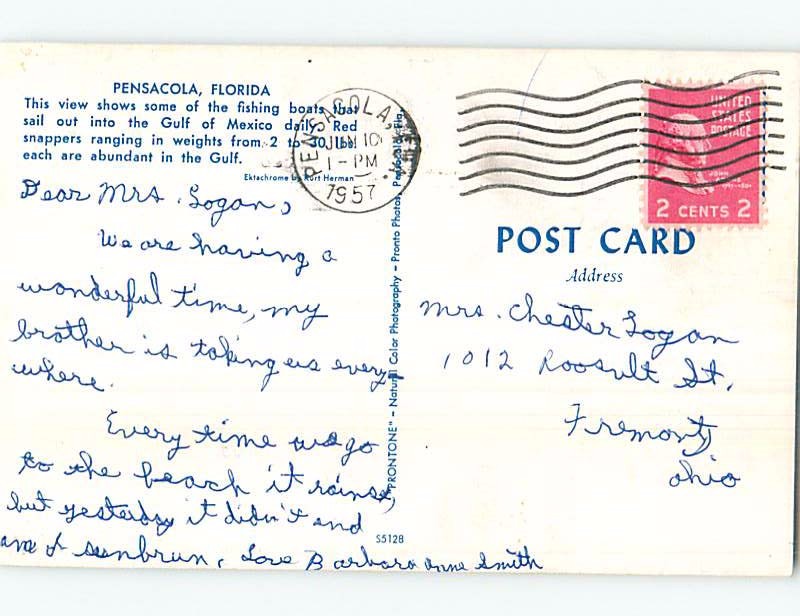 PENSACOLA, FLORIDA
This view shows some of the fishing boats that
sail out into the Gulf of Mexico daily. Red
snappers ranging in weights from 2 to 30 lbs.
each are abundant in the Gulf.
Ektachrome by Kurt Herman
PENSACOLA,
JUN 10
1-PM
1957
Dear Mrs. Logan,
We are having a
wonderful time, my
brother is taking us every
where.
Every time we go
to the beach it rains,
but yesterday it didn't and
sunbrun, Love Barbara Anne Smith
"PRONTONE" – Natural Color Photography – Pronto Photos, Pensacola, Fla.
S5128
UNITED
STATES
POSTAGE
JOHN
2 CENTS 2
POST CARD
Address
Mrs. Chester Logan
1012 Roosvult St.
Fremont,
Ohio